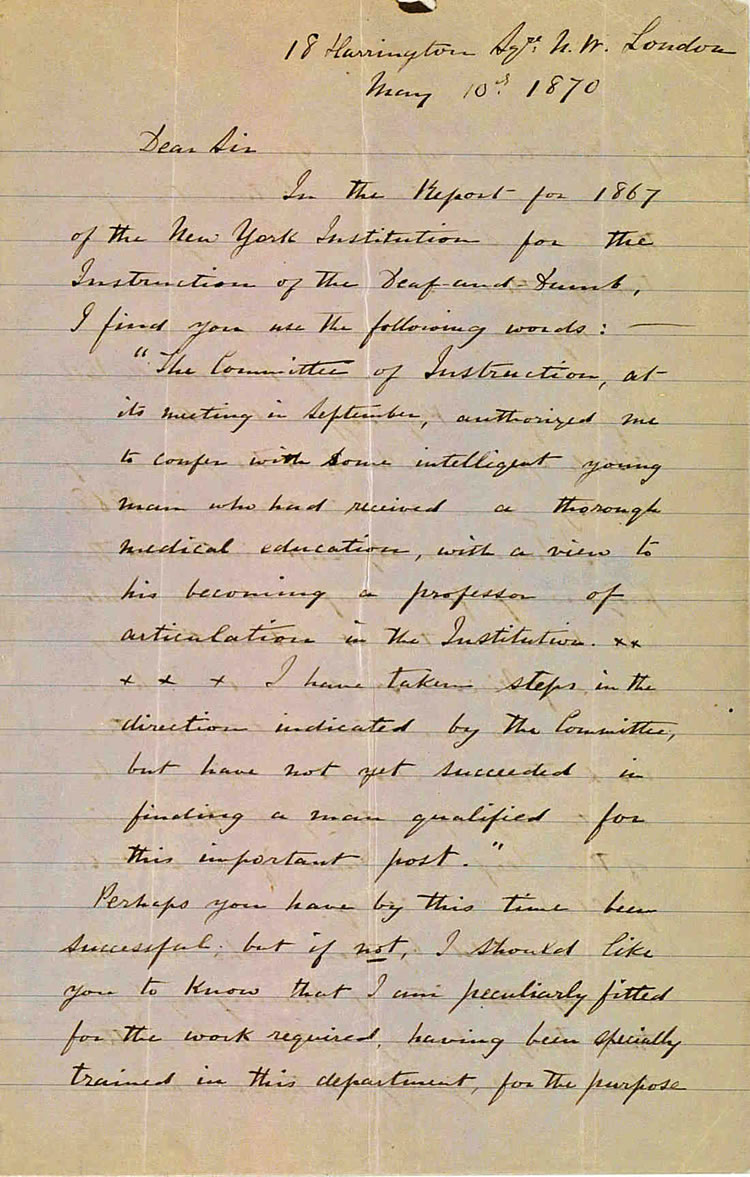 18 Harrington Sqre. N.W. London
May 10th 1870
Dear Sir
In the Report for 1867
of the New York Institution for the
Instruction of the Deaf-and-Dumb,
I find you use the following words: —
"The Committee of Instruction, at
its meeting in September, authorized me
to confer with some intelligent young
man who had received a thorough
medical education, with a view to
his becoming a professor of
articulation in the Institution. x x
x x x I have taken steps in the
direction indicated by the Committee,
but have not yet succeeded in
finding a man qualified for
this important post."
Perhaps you have by this time been
successful; but if not, I should like
you to know that I am peculiarly fitted
for the work required, having been specially
trained in this department, for the purpose